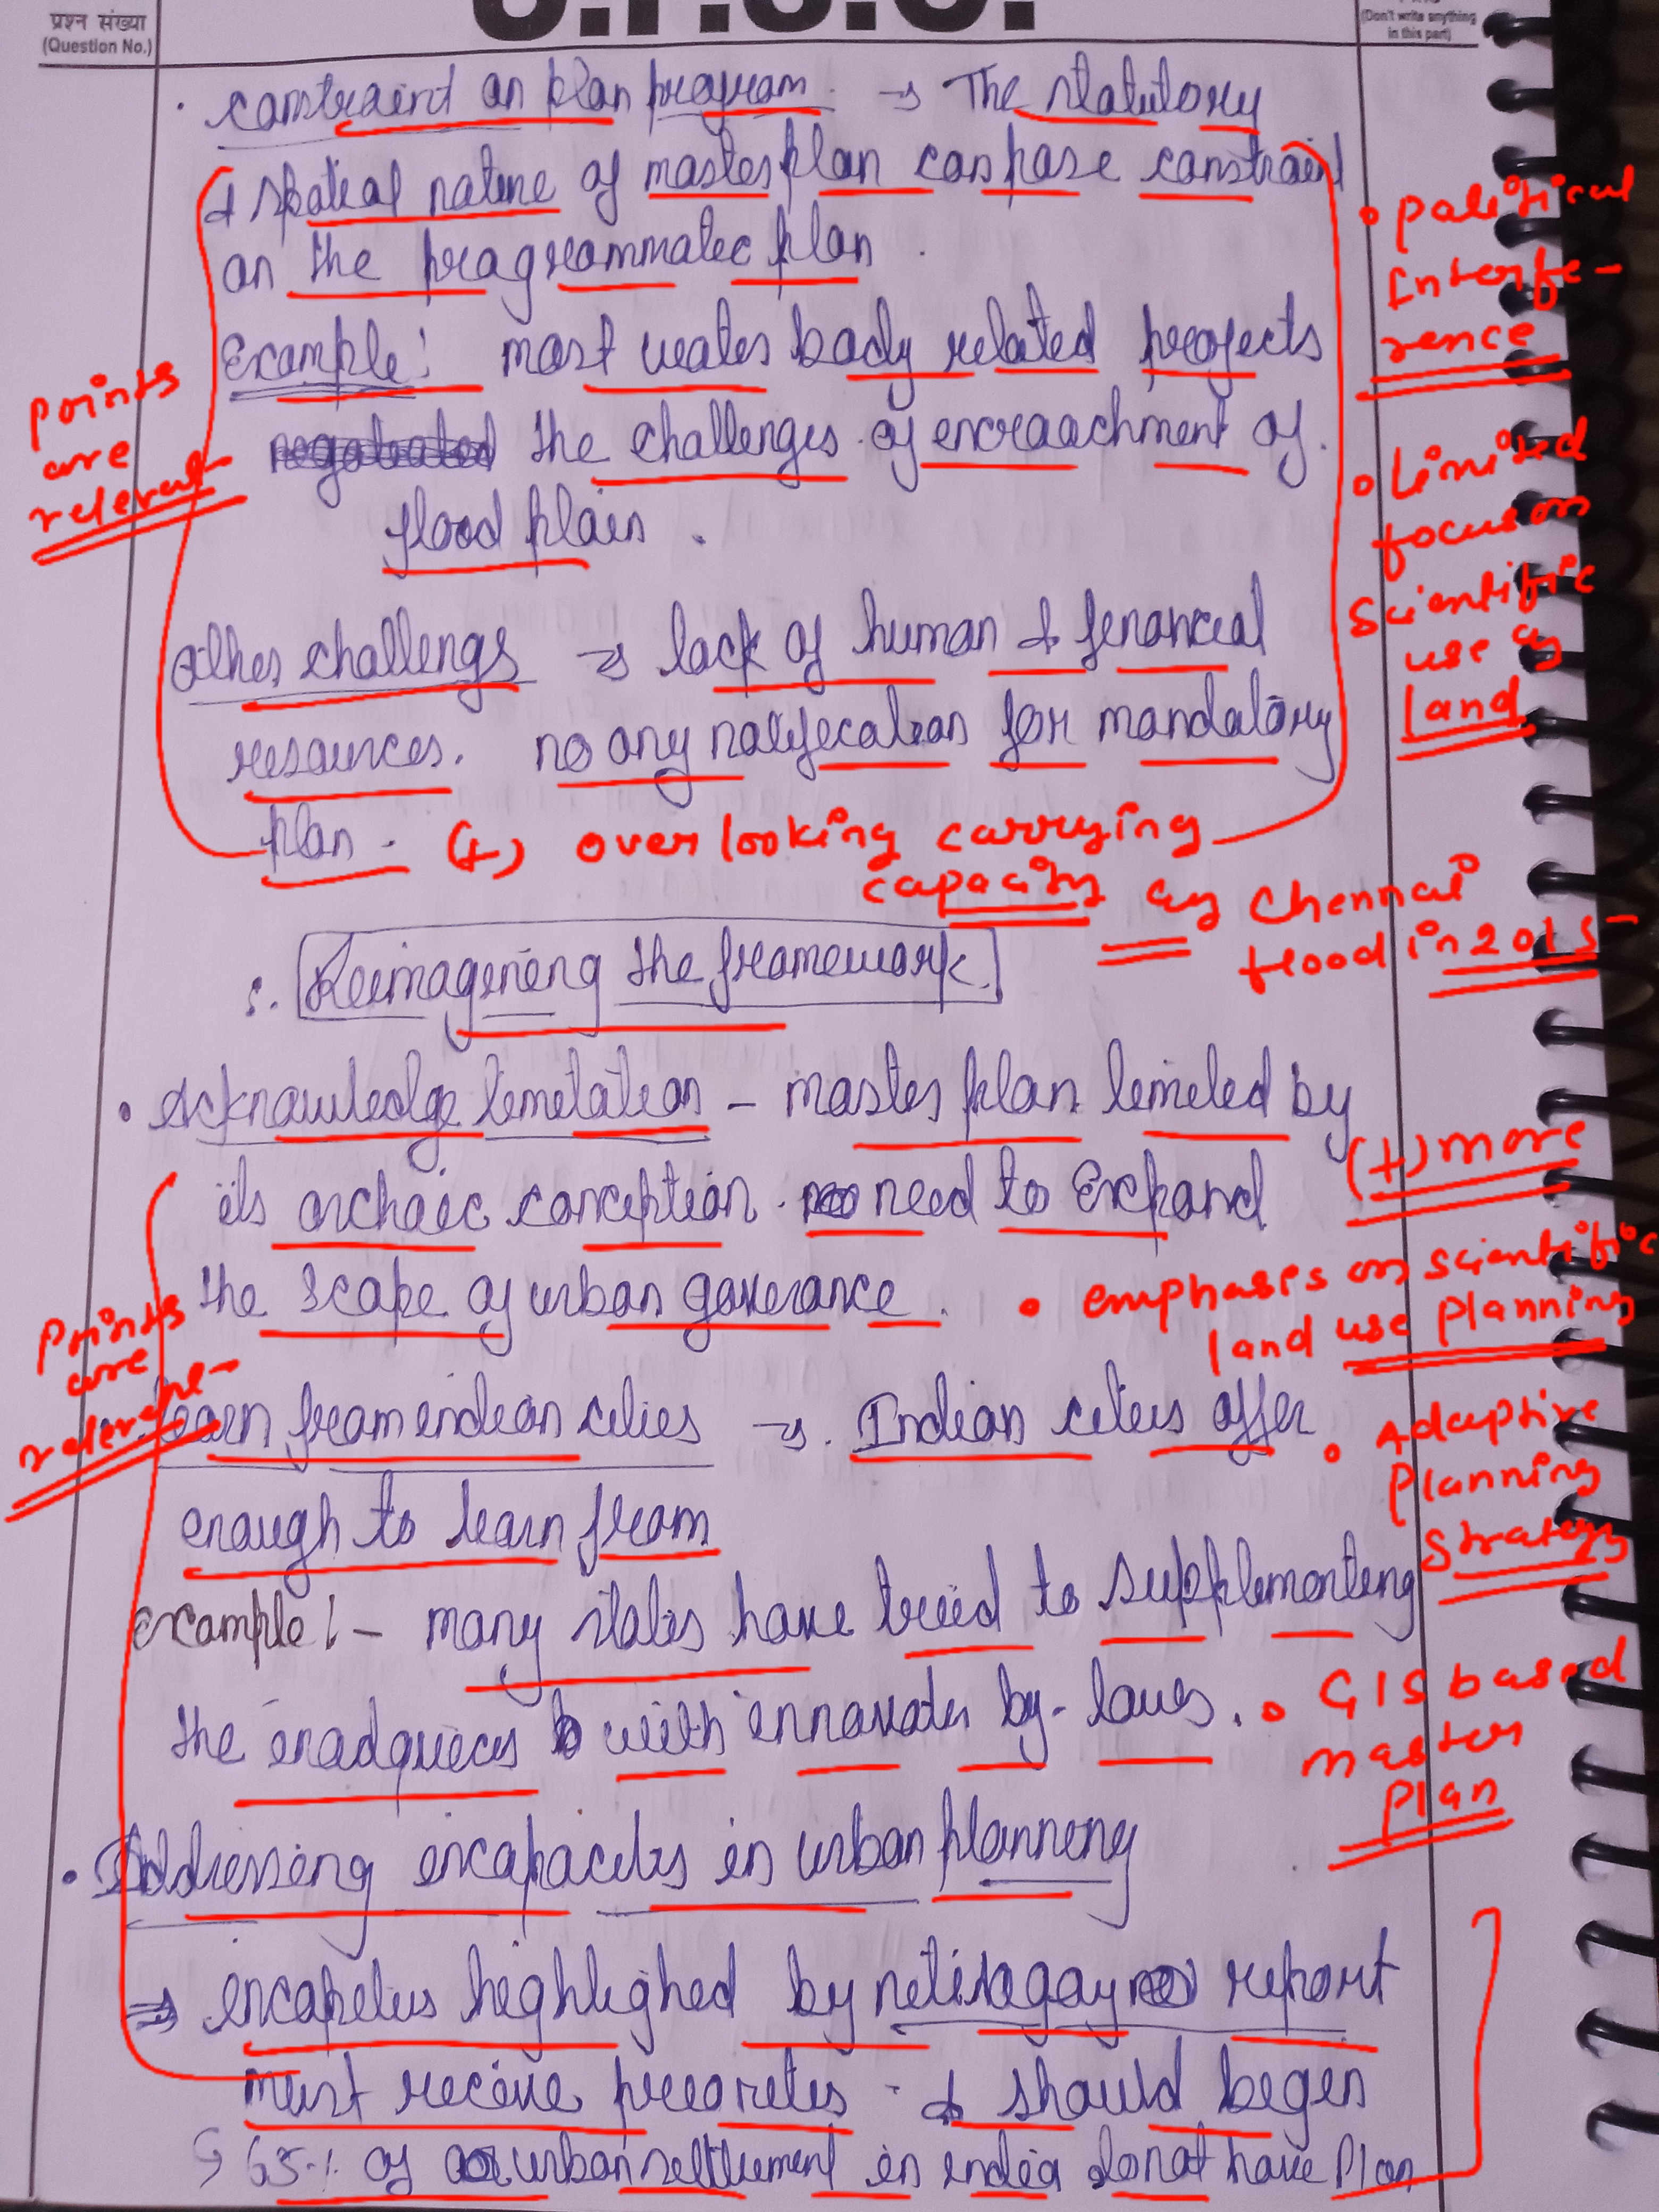 प्रश्न संख्या
(Question No.)
U.P.S.C.
(Don't write anything
in this part)
• constraint on plan program → The statutory
& spatial nature of master plan can pose constraint
on the programmatic plan.
• political
Interfe-
rence
Example: most water body related projects
points
are
relevant
the challenges of encroachment of
flood plain.
• Limited
focus on
scientific
use of
land
other challengs ⇒ lack of human & financial
resources. no any notification for mandatory
plan. (+) over looking carrying
capacity eg Chennai
flood in 2015
:. Reimagining the framework.
• Acknowledge limitation - master plan limited by
its archaic conception. need to Expand
(+) more
the scope of urban goverance.
• emphasis on scientific
land use planning
points
are
relevant
Learn from indian cities → Indian cities offer
enough to learn from
• Adaptive
planning
strategy
example:- many states have tried to supplementing
the inadquices with innovates by-laws.
• GIS based
master
plan
• Addressing incapacities in urban planning
⇒ incapities highlighed by nitiaayog report
must receive priorities. & should begin
↳ 65% of urban settlement in india donot have plan